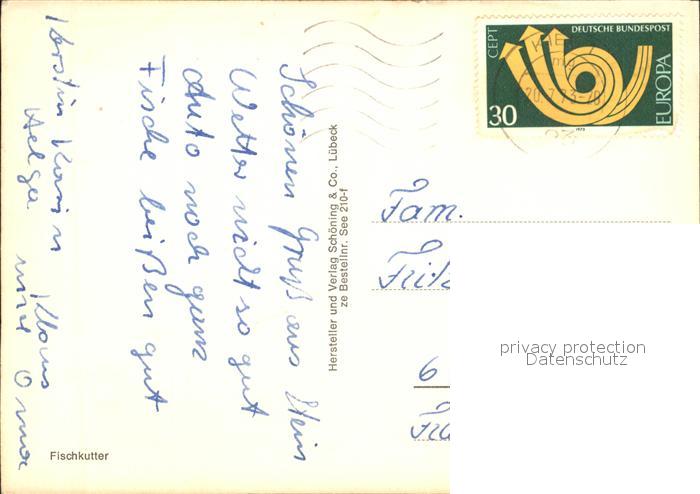 Schönen Gruß aus Stein
Wetter nicht so gut
Auto noch ganz
Fische beißen gut
Kerstin Karin Klaus
Helga und Oma
Fischkutter
Hersteller und Verlag Schöning & Co., Lübeck
ze Bestellnr. See 210-f
CEPT
DEUTSCHE BUNDESPOST
EUROPA
30
1973
Fam.
6
privacy protection
Datenschutz